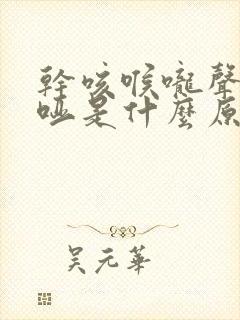 幹咳喉嚨聲
啞是什麼原
吴元華